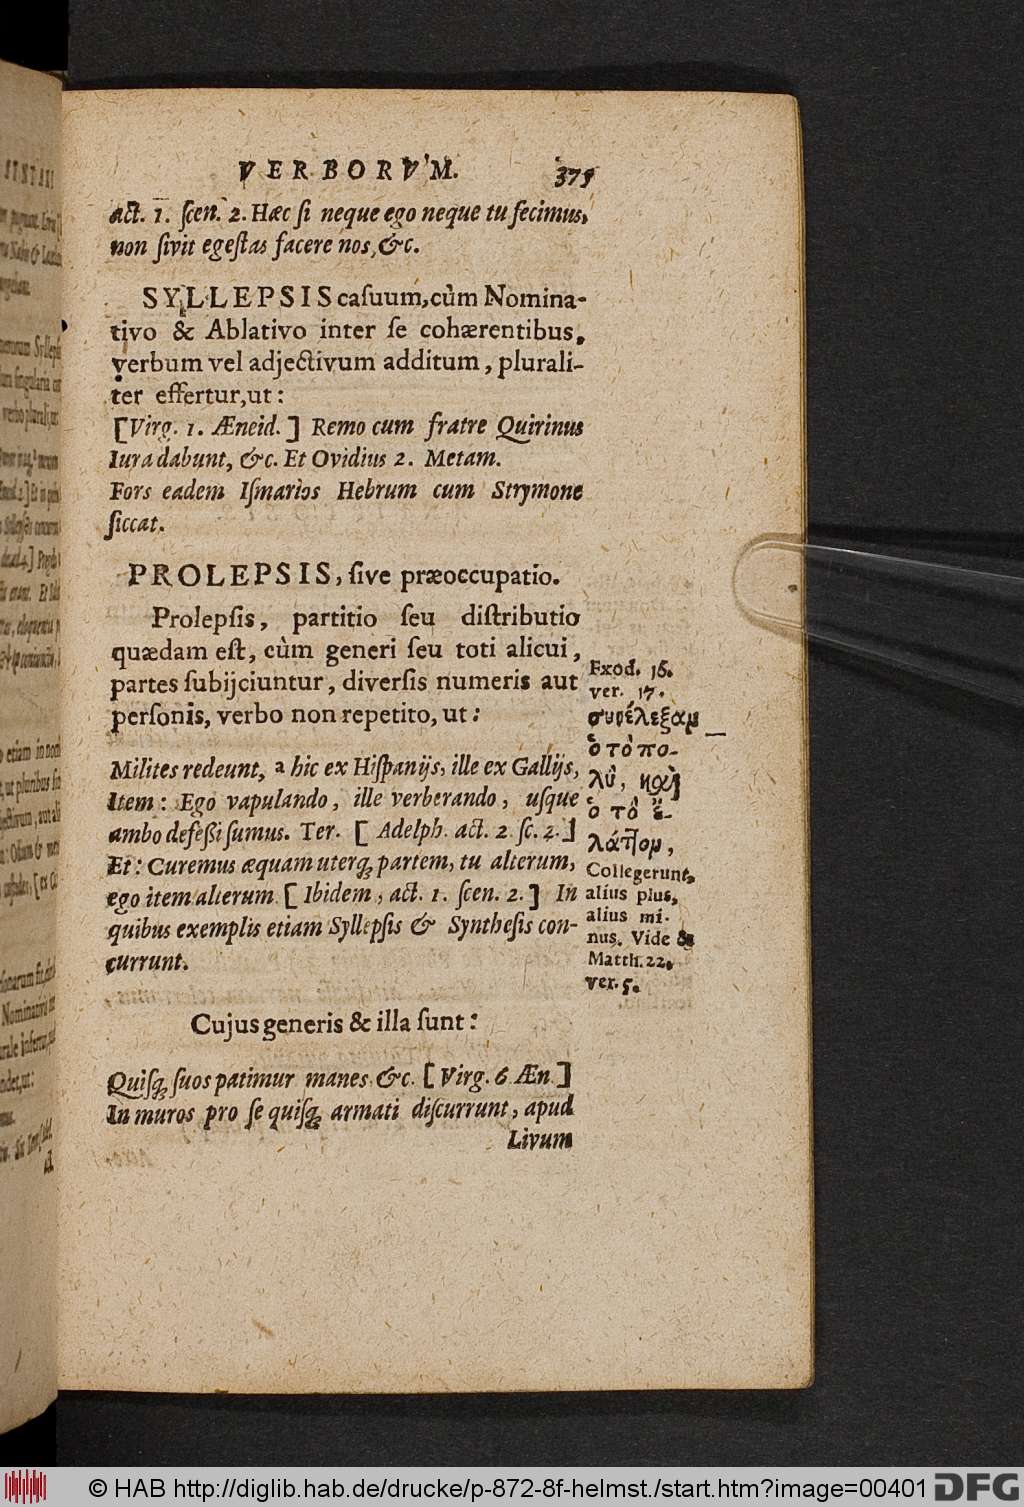 VERBORVM. 375
act. 1. ſcen. 2. Hæc ſi neque ego neque tu fecimus,
non ſivit egeſtas facere nos, &c.
SYLLEPSIS caſuum, cùm Nomina-
tivo & Ablativo inter ſe cohærentibus,
verbum vel adjectivum additum, plurali-
ter effertur, ut:
[Virg. 1. Æneid.] Remo cum fratre Quirinus
Iura dabunt, &c. Et Ovidius 2. Metam.
Fors eadem Iſmarios Hebrum cum Strymone
ſiccat.
PROLEPSIS, ſive præoccupatio.
Prolepſis, partitio ſeu diſtributio
quædam eſt, cùm generi ſeu toti alicui,
partes ſubijciuntur, diverſis numeris aut
perſonis, verbo non repetito, ut:
Milites redeunt, a hic ex Hiſpanijs, ille ex Gallijs,
Item: Ego vapulando, ille verberando, uſque
ambo defeßi ſumus. Ter. [Adelph. act. 2 ſc. 2.]
Et: Curemus æquam uterq; partem, tu alterum,
ego item alterum [Ibidem, act. 1. ſcen. 2.] In
quibus exemplis etiam Syllepſis & Syntheſis con-
currunt.
Exod. 16.
ver. 17.
συνέλεξαν
ὁ τὸ πο-
λὺ, καὶ
ὁ τὸ ἔ-
λάτιον,
Collegerunt,
alius plus,
alius mi-
nus. Vide &
Matth. 22.
ver. 5.
Cujus generis & illa ſunt:
Quiſq; ſuos patimur manes &c. [Virg. 6 Æn]
In muros pro ſe quiſq; armati diſcurrunt, apud
Livum
© HAB http://diglib.hab.de/drucke/p-872-8f-helmst./start.htm?image=00401
DFG